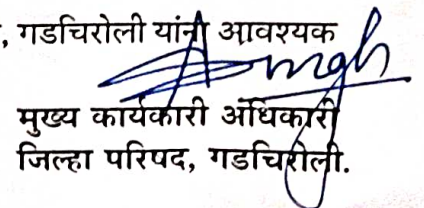 , गडचिरोली यांना आवश्यक
मुख्य कार्यकारी अधिकारी
जिल्हा परिषद, गडचिरोली.